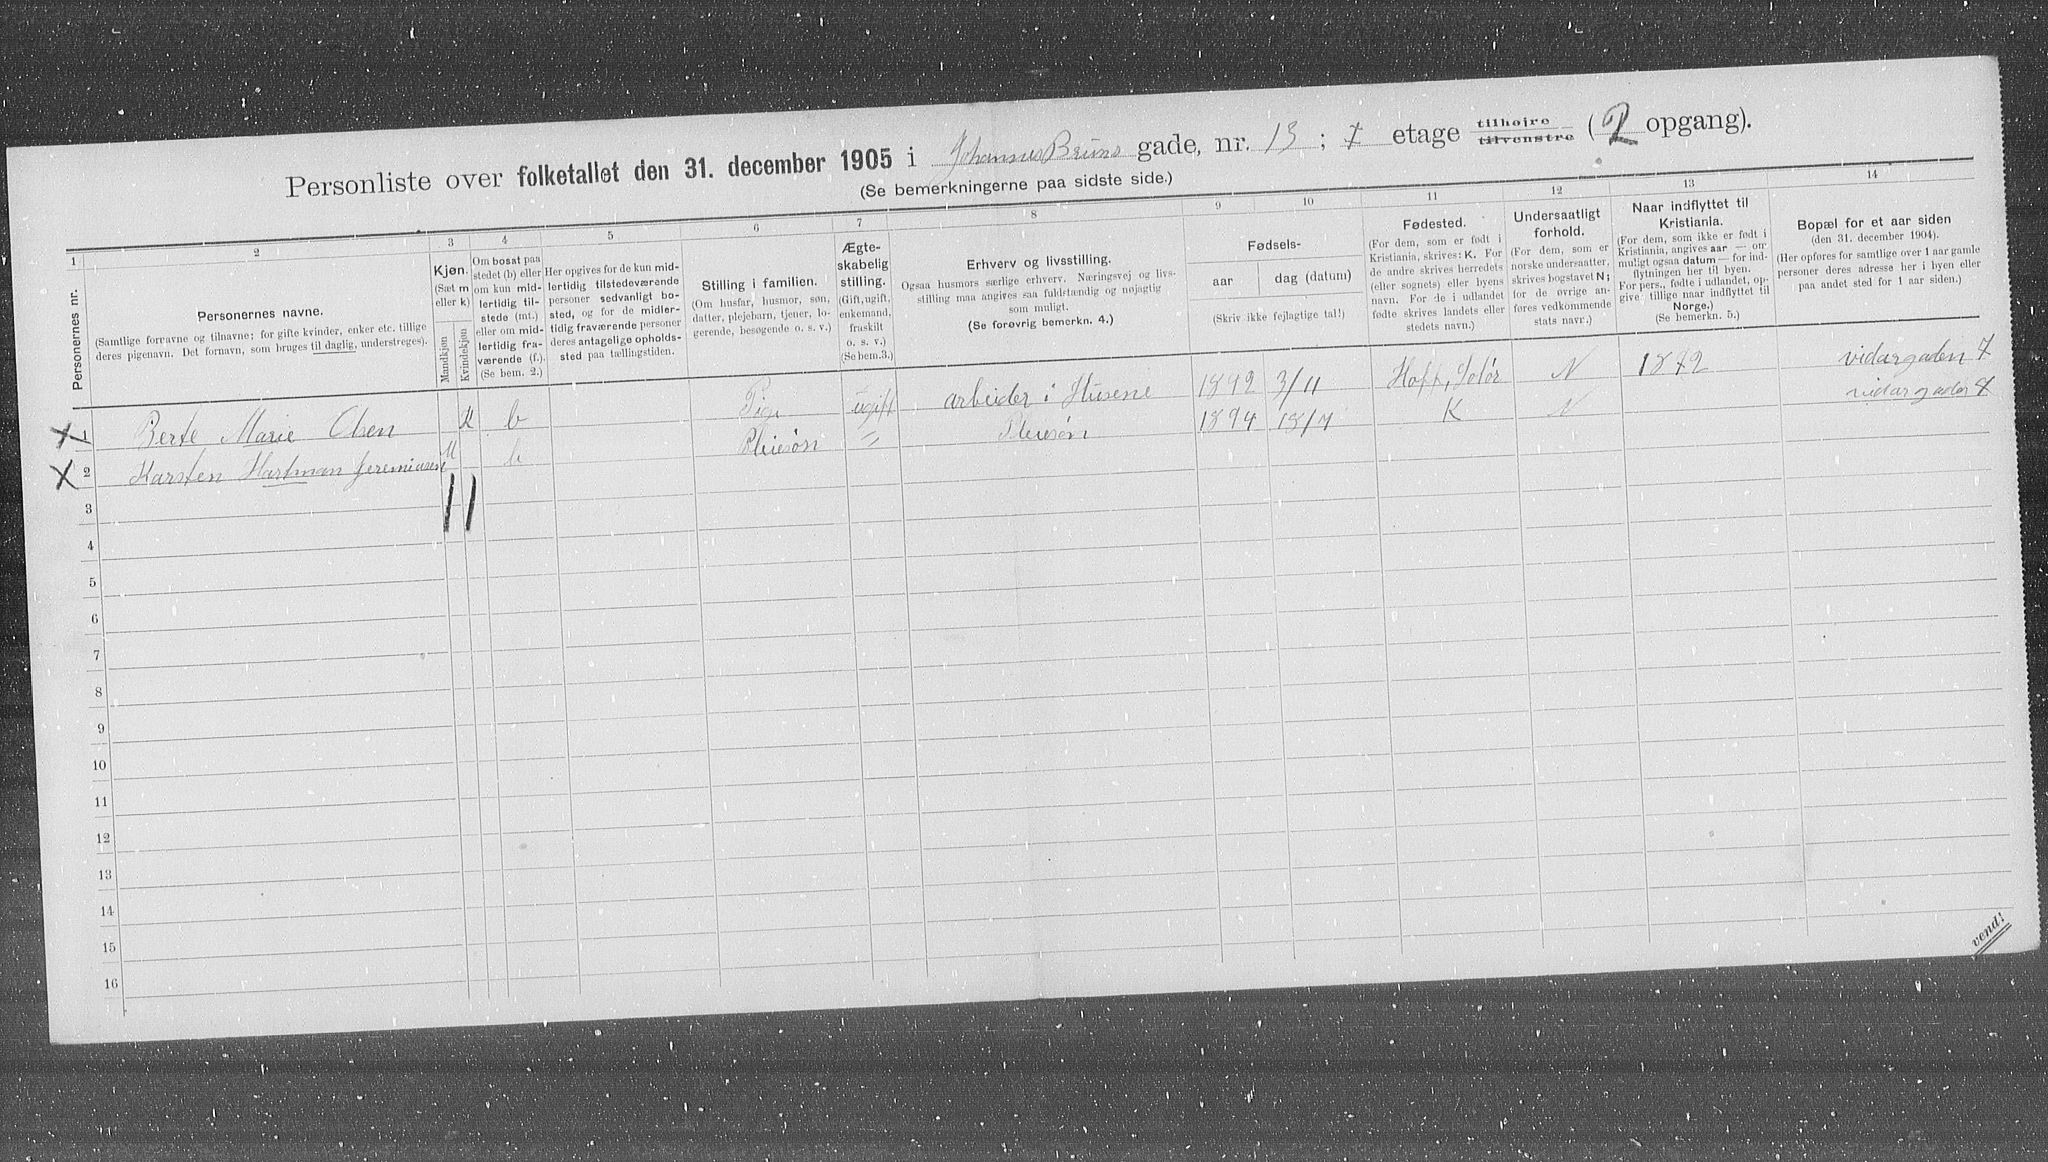 Personliste over folketallet den 31. december 1905 i Johannes Bruns gade, nr. 13 ; 1 etage tilhøjre ~~tilvenstre~~ (2 opgang).
(Se bemerkningerne paa sidste side.)
1 2 3 4 5 6 7 8 9 10 11 12 13 14
Personernes nr.
Personernes navne.
(Samtlige fornavne og tilnavne; for gifte kvinder, enker etc. tillige
deres pigenavn. Det fornavn, som bruges til daglig, understreges).
Kjøn.
(Sæt m
eller k)
Mandkjøn
Kvindekjøn
Om bosat paa
stedet (b) eller
om kun mid-
lertidig til-
stede (mt.)
eller om mid-
lertidig fra-
værende (f.).
(Se bem. 2.)
Her opgives for de kun mid-
lertidig tilstedeværende
personer sedvanligt bo-
sted, og for de midler-
tidig fraværende personer
deres antagelige opholds-
sted paa tællingstiden.
Stilling i familien.
(Om husfar, husmor, søn,
datter, plejebarn, tjener, lo-
gerende, besøgende o. s. v.)
Ægte-
skabelig
stilling.
(Gift, ugift,
enkemand,
fraskilt
o. s. v.)
(Se bem. 3.)
Erhverv og livsstilling.
Ogsaa husmors særlige erhverv. Næringsvej og livs-
stilling maa angives saa fuldstændig og nøjagtig
som muligt.
(Se forøvrig bemerkn. 4.)
Fødsels-
aar
dag (datum)
(Skriv ikke fejlagtige tal!)
Fødested.
(For dem, som er født i
Kristiania, skrives: K. For
de andre skrives herredets
(eller sognets) eller byens
navn. For de i udlandet
fødte skrives landets eller
stedets navn.)
Undersaatligt
forhold.
(For dem, som er
norske undersaatter,
skrives bogstavet N;
for de øvrige an-
føres vedkommende
stats navr.)
Naar indflyttet til
Kristiania.
(For dem, som ikke er født i
Kristiania, angives aar — om
muligt ogsaa datum — for ind-
flytningen her til byen.
For pers., fødte i udlandet, op-
give. tillige naar indflyttet til
Norge.)
(Se bemerkn. 5.)
Bopæl for et aar siden
(den 31. december 1904).
(Her opføres for samtlige over 1 aar gamle
personer deres adresse her i byen eller
paa andet sted for 1 aar siden.)
X 1 Berte Marie Olsen K b Pige ugift arbeider i Husene 1842 3/11 Hoff, Solør N 1872 vidargaden 7
X 2 Karsten Hartman Jeremiasen M b Pleiesøn " Pleiesøn 1894 18/7 K N vidargaden 7
3
4
5
6
7
8
9
10
11
12
13
14
15
16
vend!